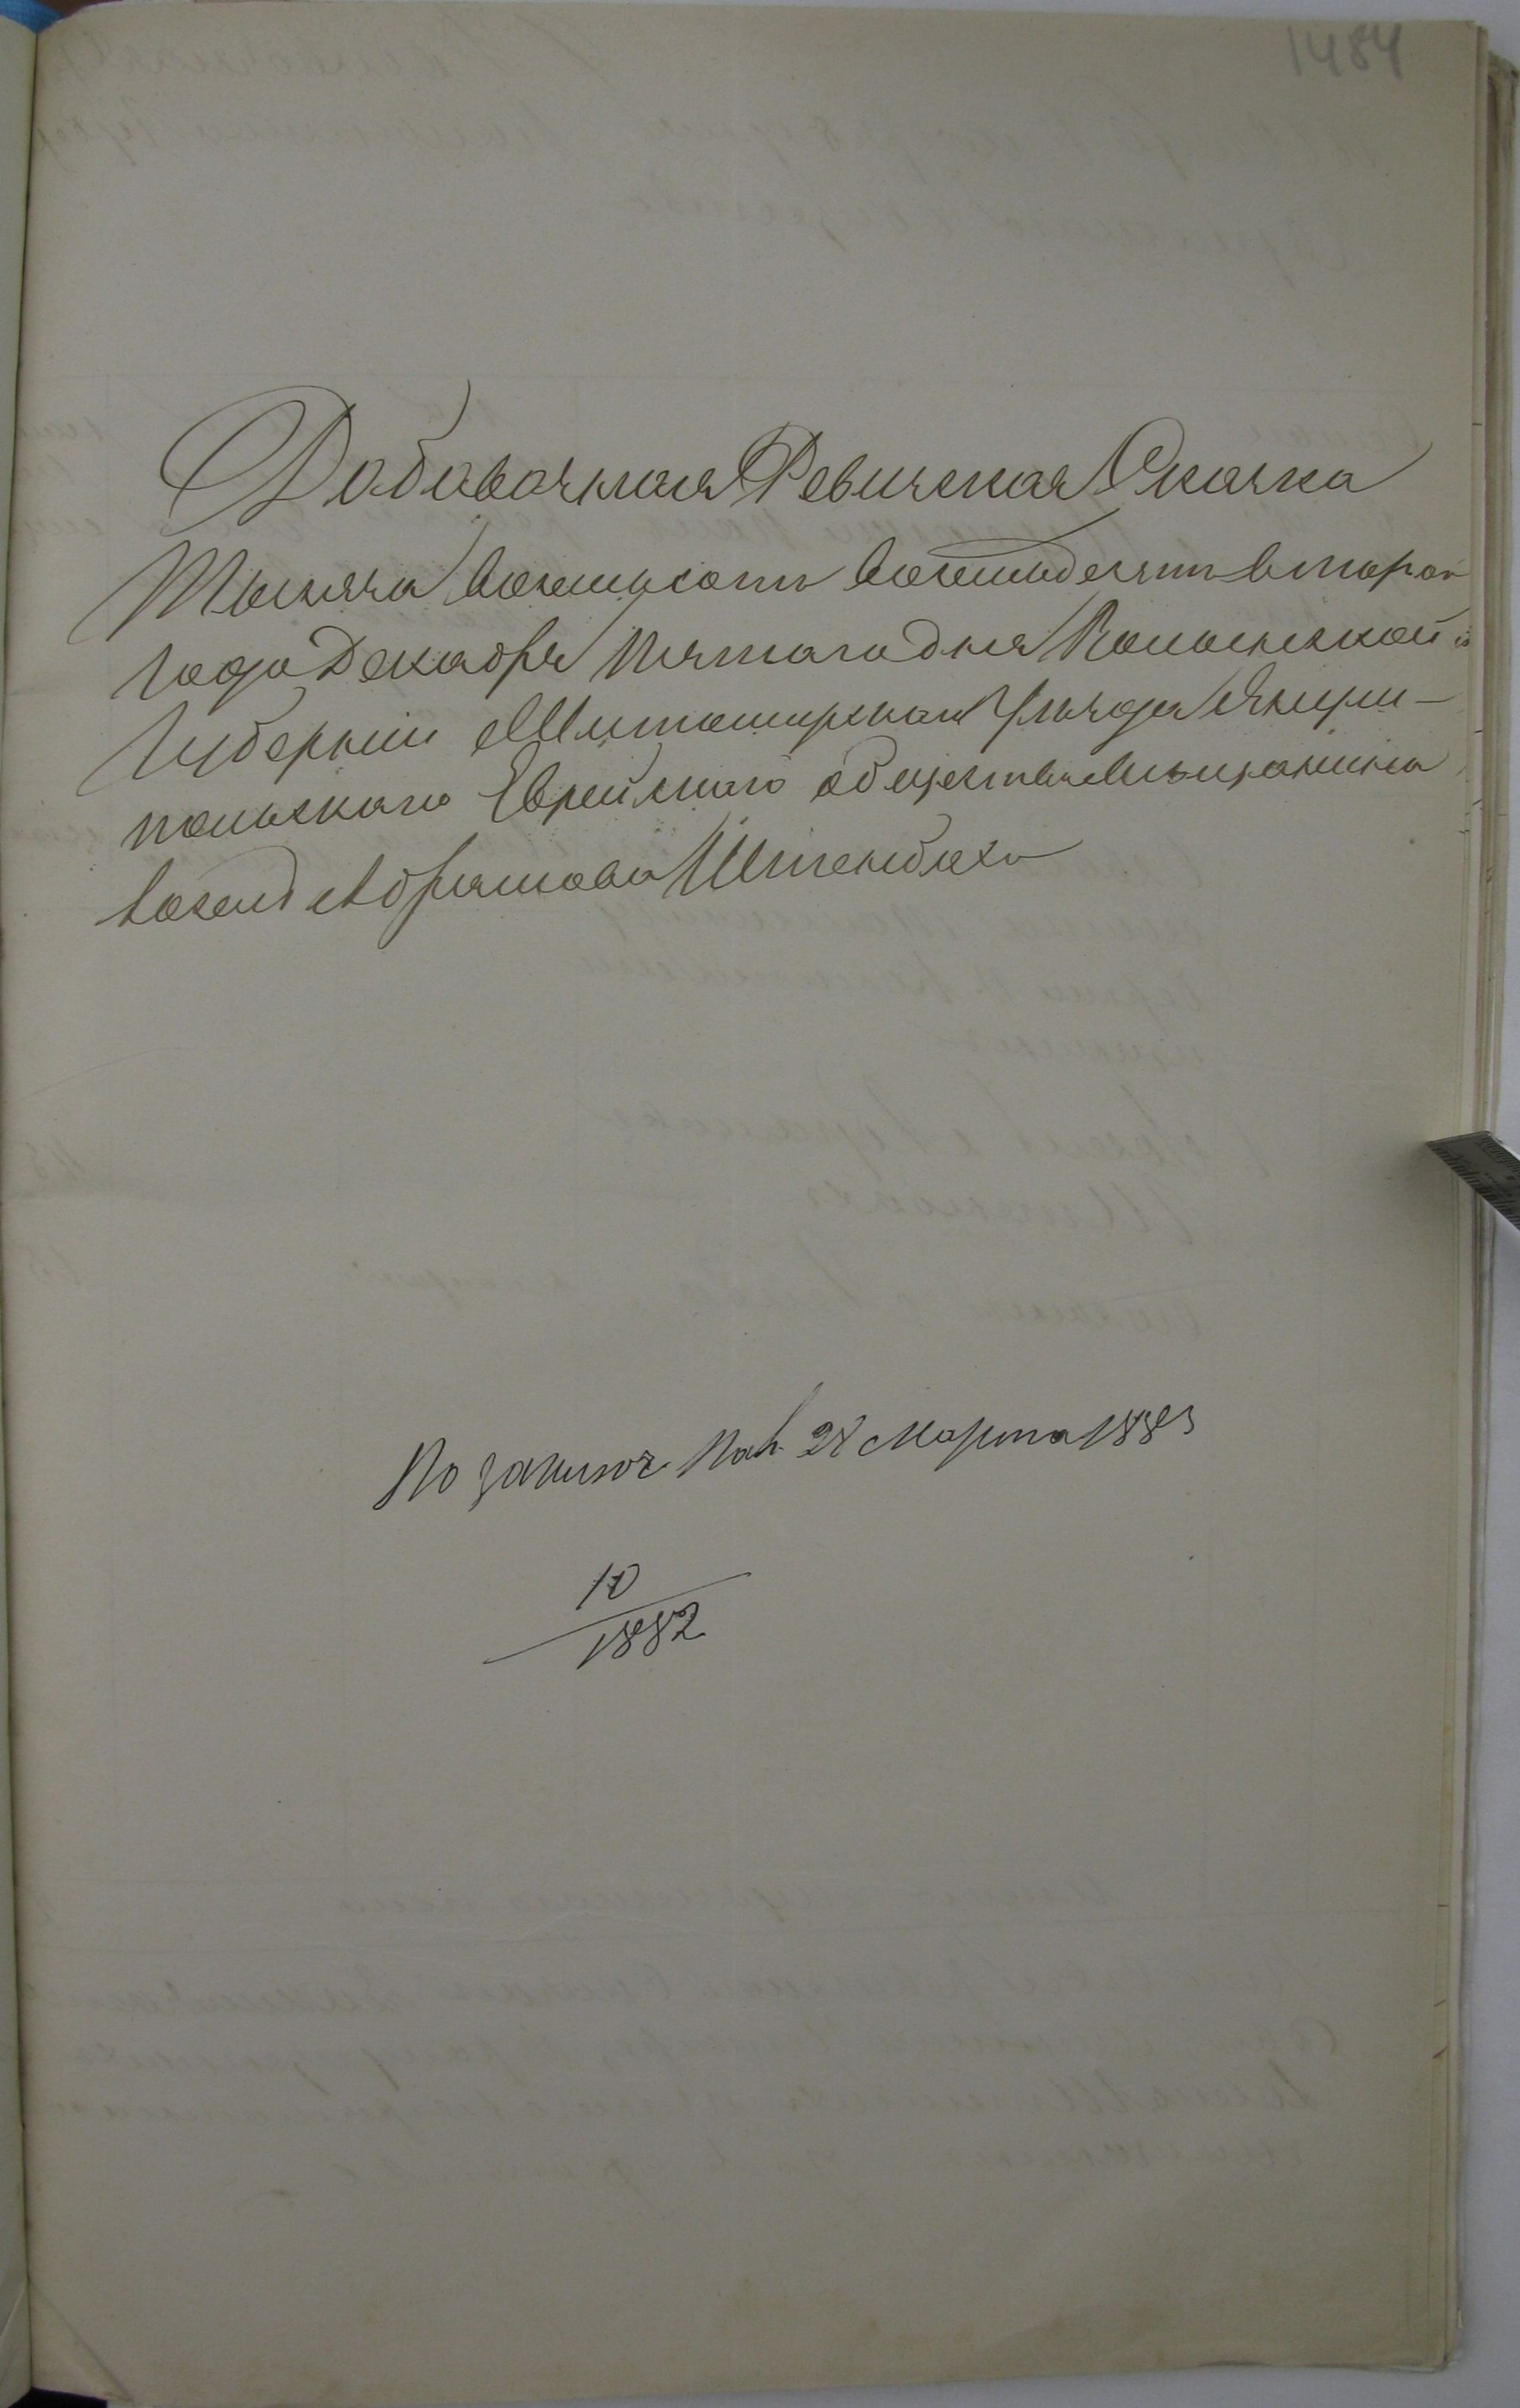 1484
Добавочная Ревизская Сказка
Тысяча восемьсотъ восемьдесятъ второго
года Декабря пятаго дня Волынской
Губернии Житомирскаго Уѣзда Янушполь-
польскаго Еврейскаго общества мѣщанина
Абрамова Штенблоха
По записи 28 Марта 1883
10
1882